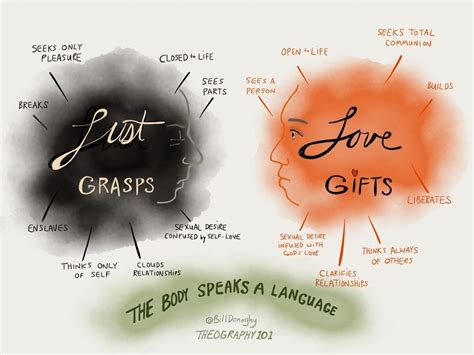 SEEKS ONLY
PLEASURE
CLOSED TO LIFE
BREAKS
SEES
PARTS
Lust
GRASPS
ENSLAVES
SEXUAL DESIRE
CONFUSED BY SELF-LOVE
THINKS ONLY
OF SELF
CLOUDS
RELATIONSHIPS
OPEN TO LIFE
SEEKS TOTAL
COMMUNION
SEES A
PERSON
BUILDS
Love
GIFTS
LIBERATES
SEXUAL DESIRE
INFUSED WITH
GOD'S LOVE
THINKS ALWAYS
OF OTHERS
CLARIFIES
RELATIONSHIPS
THE BODY SPEAKS A LANGUAGE
@BillDonaghy
THEOGRAPHY101